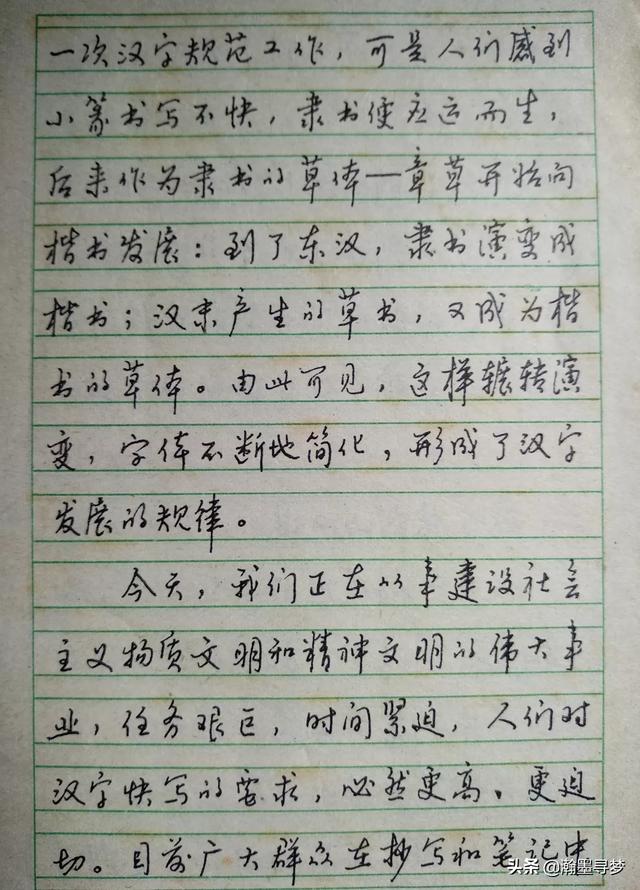 一次汉字规范工作，可是人们感到
小篆书写不快，隶书便应运而生，
后来作为隶书的草体—章草开始向
楷书发展：到了东汉，隶书演变成
楷书；汉末产生的草书，又成为楷
书的草体。由此可见，这样辗转演
变，字体不断地简化，形成了汉字
发展的规律。
今天，我们正在从事建设社会
主义物质文明和精神文明的伟大事
业，任务艰巨，时间紧迫，人们对
汉字快写的要求，必然更高、更迫
切。目前广大群众在抄写和笔记中
头条 @瀚墨寻梦